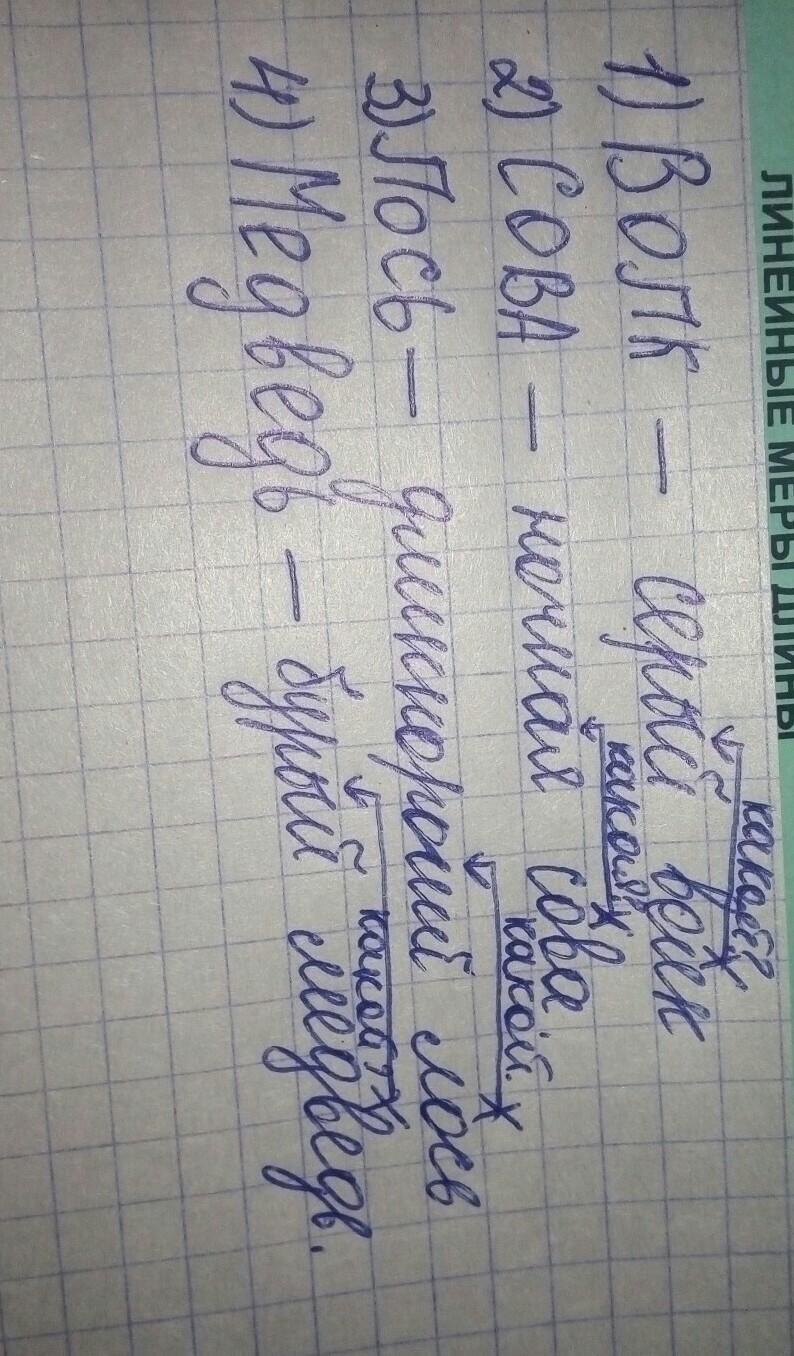 ЛИНЕЙНЫЕ МЕРЫ ДЛИНЫ
какой? х
1) Волк – серый волк
какая? х
2) СОВА – ночная сова
какой? х
3) Лось – длиннорогий лось
какой? х
4) Медведь – бурый медведь.